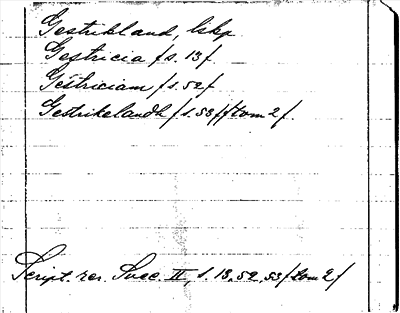 Gestrikland, lskp
Gestricia /s. 13/
Gestriciam /s. 52/
Gestrikelandh /s. 53/ /tom 2/.
Script. rer. Svec. II, s. 13, 52, 53 /tom 2/